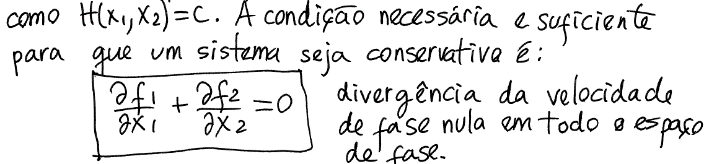 como H(x₁,x₂)=C. A condição necessária e suficiente
para que um sistema seja conservativa é:
∂f₁/∂x₁ + ∂f₂/∂x₂ = 0
divergência da velocidade
de fase nula em todo o espaço
de fase.